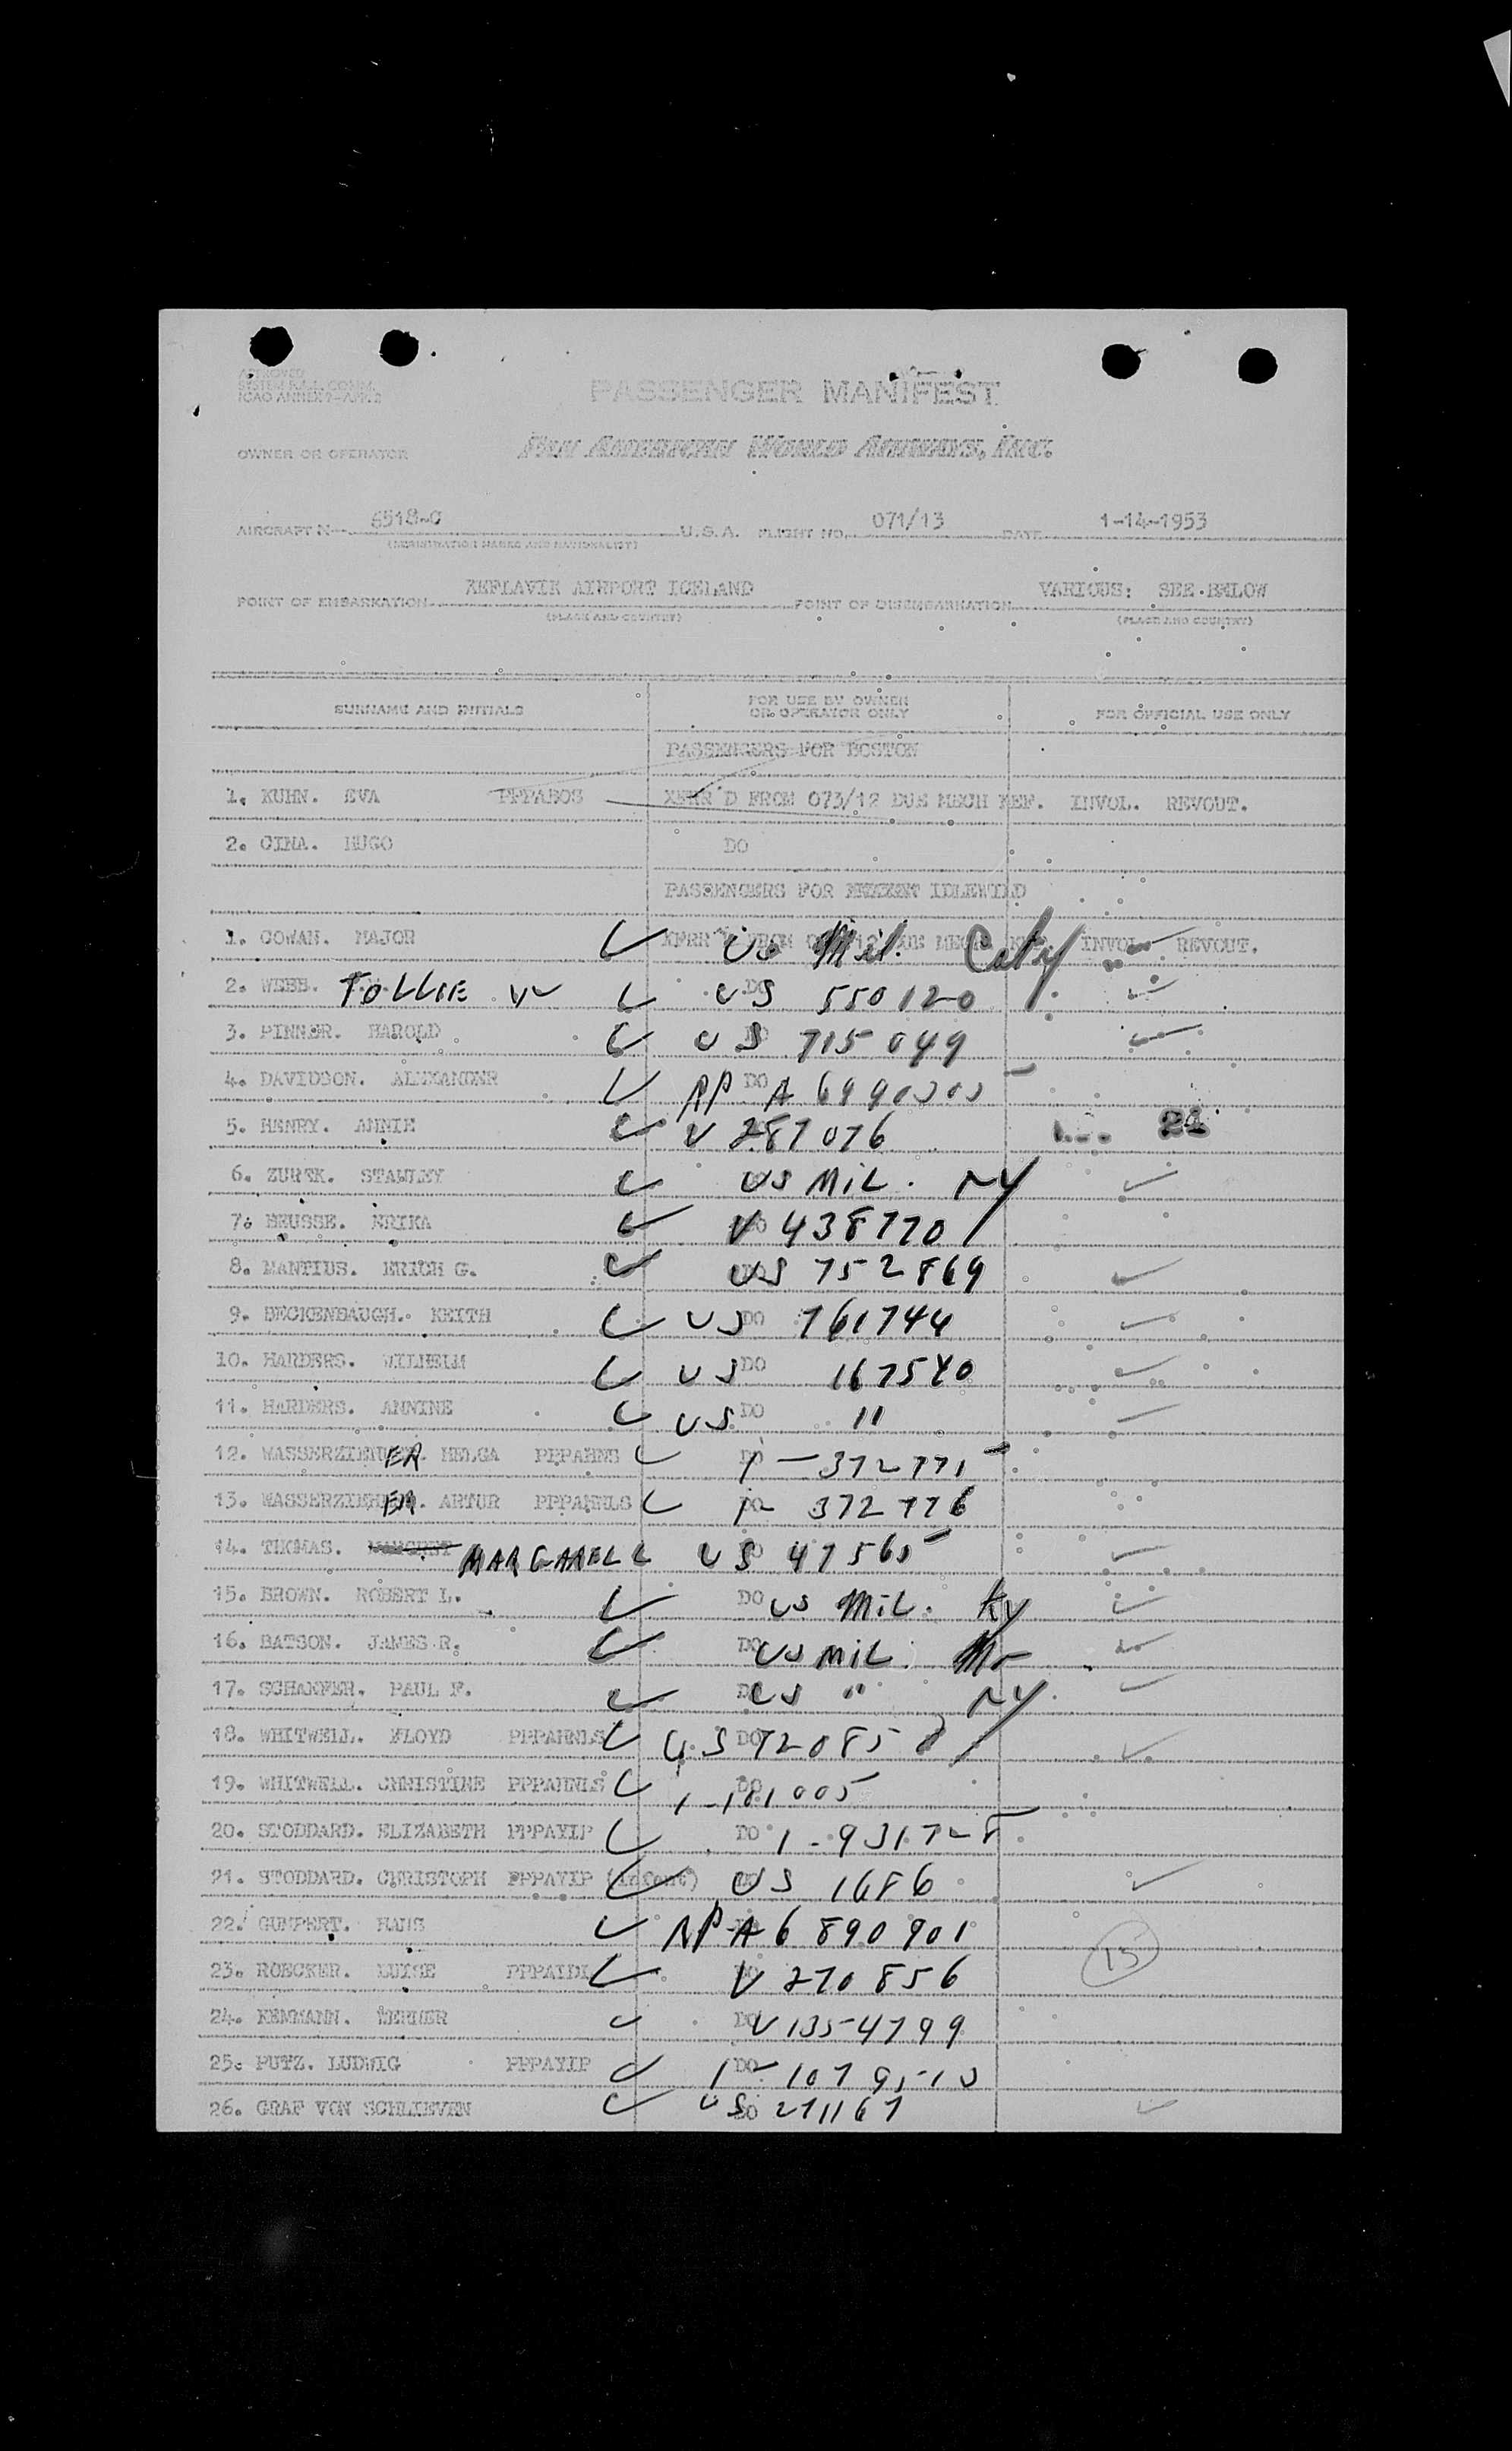 APPROVED
ICAO ANNEX 9-APP. 2
PASSENGER MANIFEST
OWNER OR OPERATOR PAN AMERICAN WORLD AIRWAYS, INC.
AIRCRAFT N- 6518-C U.S.A. FLIGHT NO. 071/13 DATE 1-14-1953
(REGISTRATION MARKS AND NATIONALITY)
POINT OF EMBARKATION KEFLAVIK AIRPORT ICELAND POINT OF DISEMBARKATION VARIOUS: SEE BELOW
(PLACE AND COUNTRY) (PLACE AND COUNTRY)
SURNAME AND INITIALS FOR USE BY OWNER OR OPERATOR ONLY FOR OFFICIAL USE ONLY
PASSENGERS FOR BOSTON
1. KUHN. EVA PPPABOS XFRR'D FROM 073/12 DUE MECH REF. INVOL. REVOUT.
2. CINA. HUGO DO
PASSENGERS FOR IDLEWILD
1. COWAN. MAJOR US Mil. INVOL. REVOUT.
2. WEBB. TOLLIE W US 550120
3. PINNER. HAROLD US 715049
4. DAVIDSON. ALEXANDER DO
5. HENRY. ANNIE V 287076
6. STANLEY US MIL. NY
7. BEUSSE. ERIKA V 438770
8. MANTIUS. ERICH G. US 752869
9. BECKENBAUGH. KEITH US DO 761744
10. HARDERS. WILHELM US DO
11. HARDERS. ANNINE US DO "
12. ER HELGA 1-372775
13. ER. ARTUR 1- 372776
14. THOMAS. US 47565
15. BROWN. ROBERT L. DO US MIL. Ky
16. BATSON. JAMES R. DO US MIL.
17. SCHAEFER. PAUL F. US " NY
18. WHITWELL. FLOYD PPPAHNLS US DO
19. WHITWELL. CHRISTINE PPPAHNLS DO 1-181005
20. STODDARD. ELIZABETH PPPAYIP DO 1-931728
21. STODDARD. CHRISTOPH PPPAYIP (infant) US 1686
22. GUMPERT. HANS AP A6 890 901
15
23. ROECKER. LUISE PPPAIDL V 270856
24. KEMMANN. WERNER DO V 1354799
25. PUTZ. LUDWIG PPPAYIP DO
26. GRAF VON SCHLIEVEN US DO 271167